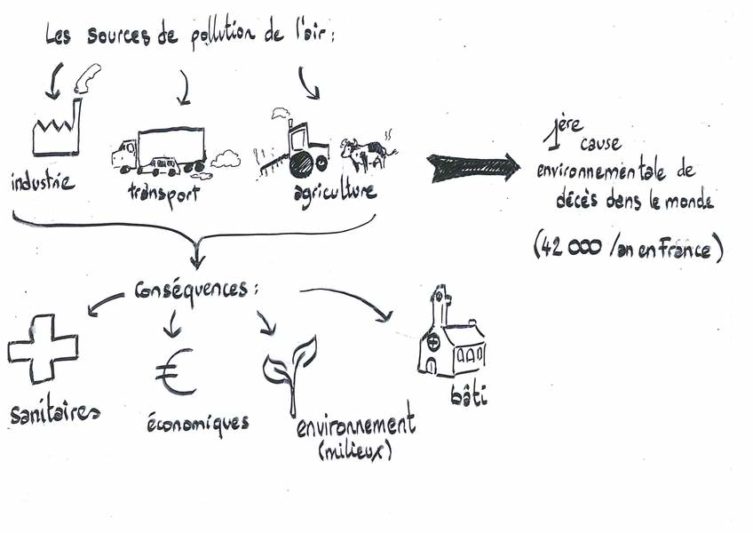 Les sources de pollution de l'air :
industrie
transport
agriculture
1ère
cause
environnementale de
décès dans le monde
(42 000 /an en France)
Conséquences :
sanitaires
économiques
environnement
(milieux)
bâti